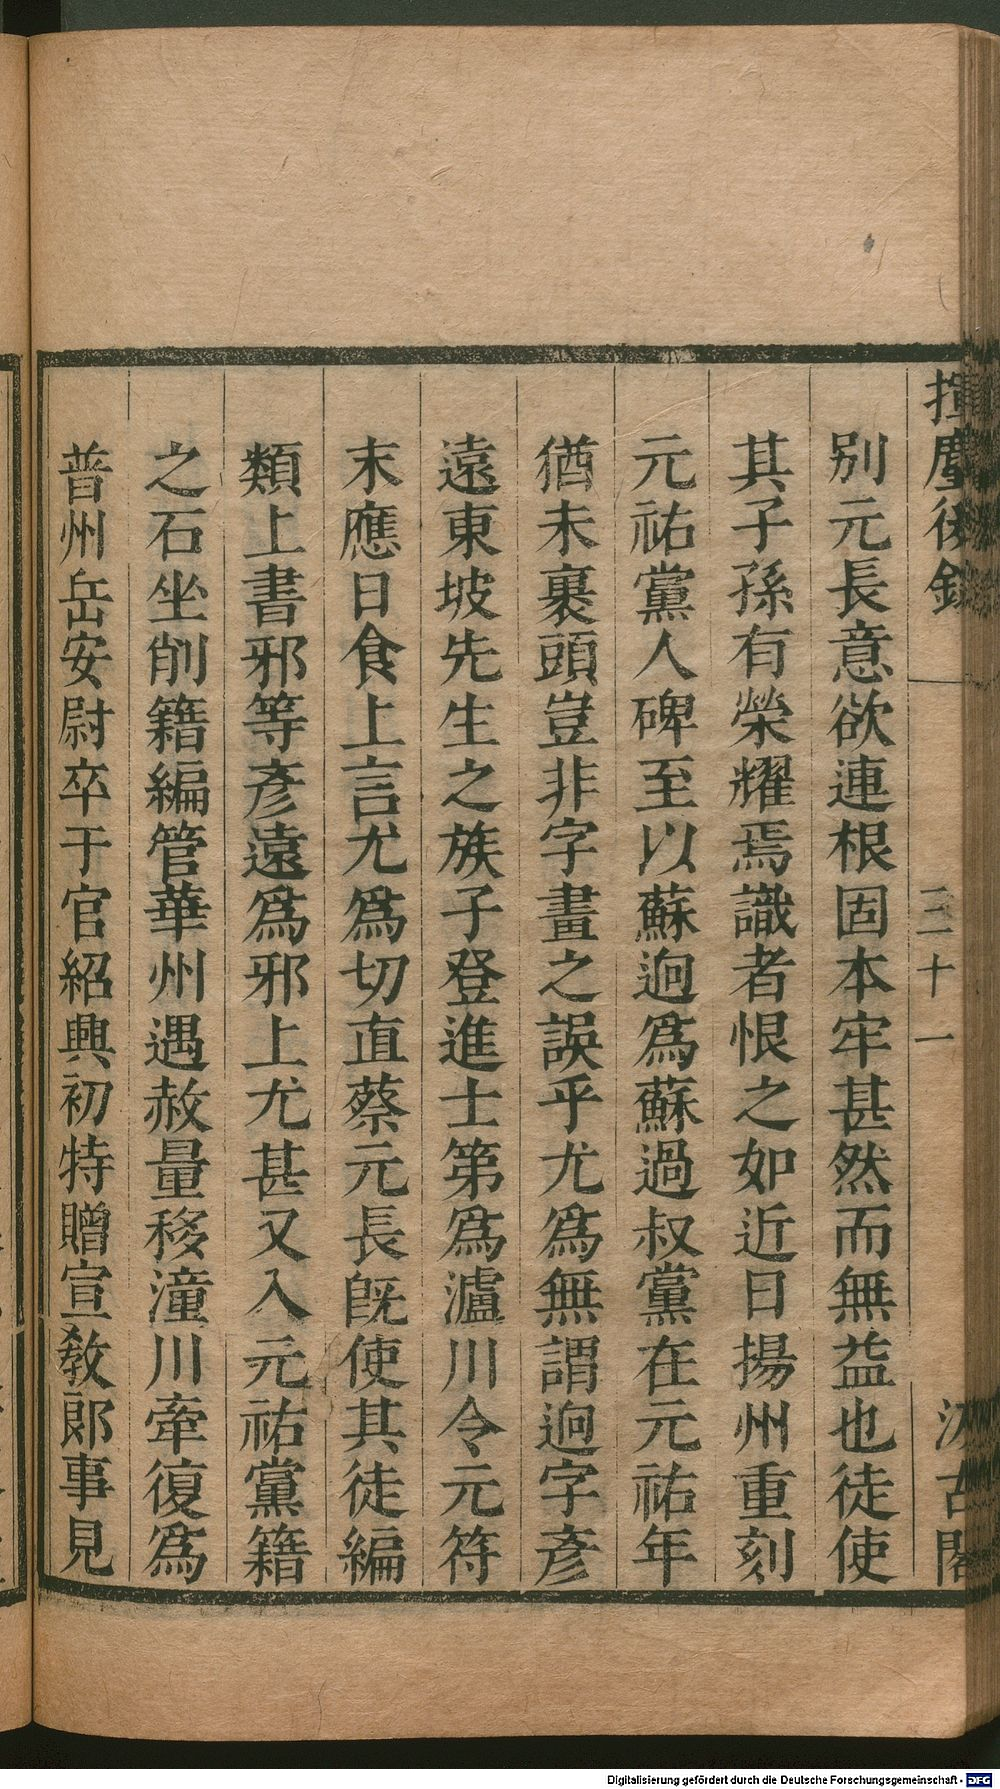 揮麈後錄
三十一
汲古閣
别元長意欲連根固本牢甚然而無益也徒使
其子孫有榮耀焉識者恨之如近日揚州重刻
元祐黨人碑至以蘇迥爲蘇過叔黨在元祐年
猶未裹頭豈非字畫之誤乎尤爲無謂迥字彥
遠東坡先生之族子登進士第爲瀘川令元符
末應日食上言尤爲切直蔡元長旣使其徒編
類上書邪等彥遠爲邪上尤甚又入元祐黨籍
之石坐削籍編管華州遇赦量移潼川牽復爲
普州岳安尉卒于官紹興初特贈宣敎郎事見
Digitalisierung gefördert durch die Deutsche Forschungsgemeinschaft - DFG